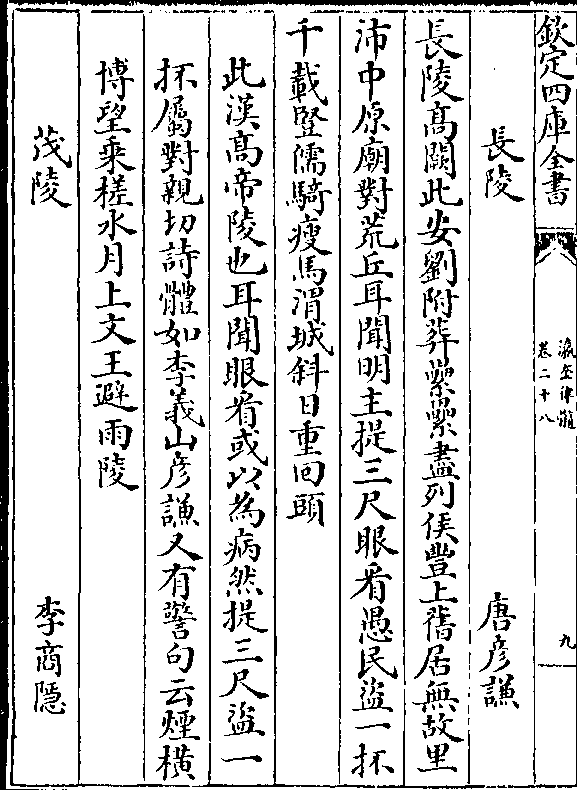 欽定四庫全書
瀛奎律髓
卷二十八
九
長陵 唐彥謙
長陵高闕此安劉附葬纍纍盡列侯豐上舊居無故里
沛中原廟對荒丘耳聞明主提三尺眼看愚民盜一抔
千載豎儒騎瘦馬渭城斜日重回頭
此漢高帝陵也耳聞眼看或以為病然提三尺盜一
抔屬對親切詩體如李義山彥謙又有警句云煙橫
博望乘槎水月上文王避雨陵
茂陵 李商隱